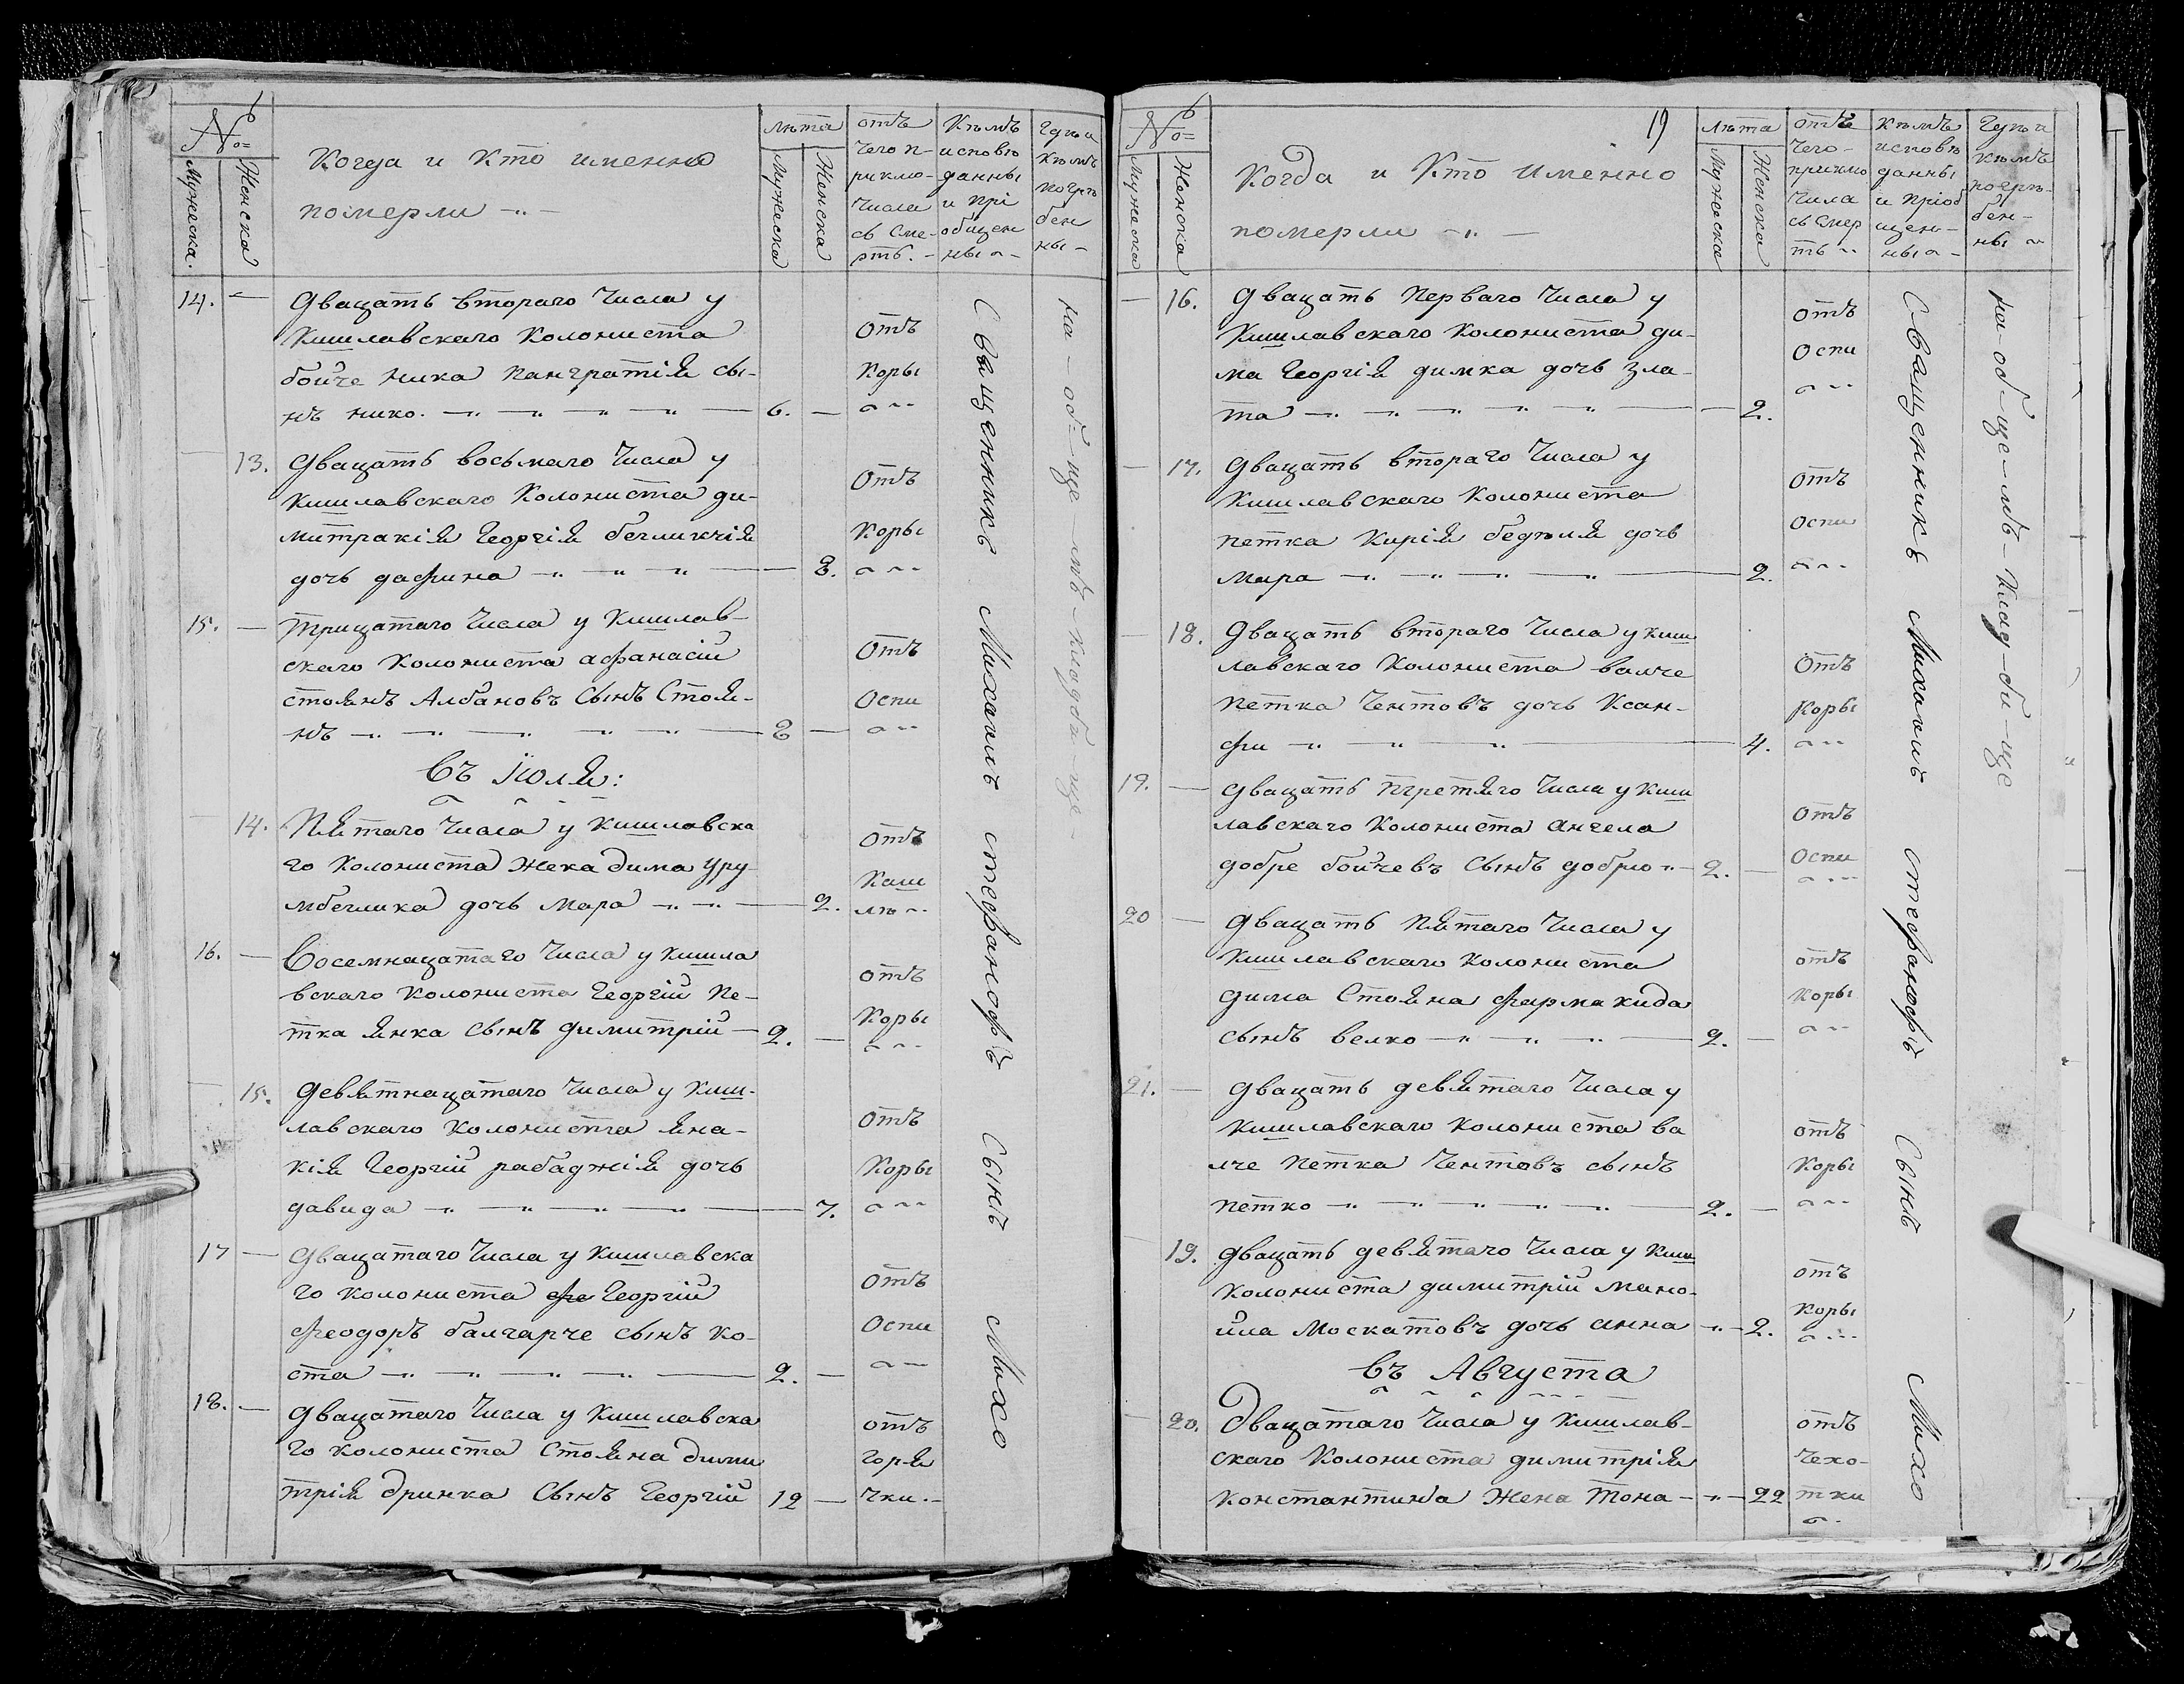 №
Мужеска.
Женска
Когда и Кто именно
померли
лѣта
Мужеска
Женска
отъ
чего п-
рикло-
чила
сь Сме-
рть.
Кѣмъ
исповѣ
данны
и прі
общен
ны
Гдѣ и
Кѣмъ
погрѣ
бен
ны
14.
Двацать втораго Числа у
Кишлавскаго Колониста
бойче Ника Пангратія сы-
нъ нико. 6.
отъ
Коры
13.
Двацать восьмаго Числа у
Кишлавскаго Колониста ди-
митракія Георгія бегликчія
дочь дафина 8.
Отъ
Коры
15.
Трицатаго Числа у Кишлав-
скаго Колониста афанасій
стоянъ Албановъ Сынъ Стоя-
нъ 8
Отъ
Оспи
Въ Іюля:
14.
Пятаго Числа у Кишлавска
го Колониста Жека дима уру-
мбеглика дочь мара 2.
Отъ
Каш
лѣ
16.
Восемнацатаго Числа у Кишла
вскаго Колониста Георгій Пе-
тка Янка сынъ димитрій 2.
отъ
Коры
15.
Девятнацатаго Числа у Киш-
лавскаго Колониста Яна-
кія Георгій рабаджія дочь
давида 7.
Отъ
Коры
17
Двацатаго Числа у Кишлавска
го Колониста Георгій
Феодоръ балчарче сынъ Ко-
ста 2.
Отъ
Оспи
18.
Двацатаго Числа у Кишлавска
го Колониста Стояна дими
трія дринка Сынъ Георгій 12
отъ
горя
чки.
Священникъ Михаилъ стефанофъ Сынъ Михо
на-об-ще-мъ-кладби-ще-
19
№
Мужеска
Женска
Когда и Кто именно
померли
Лѣта
Мужеска
Женска
отъ
чего-
приклю
чила
сь Смер
ть
Кѣмъ
исповѣ
данны
и пріоб
щен-
ны
Гдѣ и
кѣмъ
погрѣ-
бен-
ны
16.
Двацать Перваго Числа у
Кишлавскаго Колониста ди-
ма Георгія димка дочь зла-
та 2.
отъ
Оспи
17.
Двацать втораго Числа у
Кишлавскаго Колониста
петка Кирія бедѣля дочь
Мара 2.
отъ
оспи
18.
Двацать втораго Числа у Киш
лавскаго Колониста валче
Петка Чентовъ дочь Ксан-
фи 4.
Отъ
Коры
19.
Двацать Третяго Числа у Киш
лавскаго Колониста ангела
добре бойчевъ Сынъ добрю 2.
отъ
Оспи
20
Двацать Пятаго Числа у
Кишлавскаго Колониста
дима Стояна Фармакида
сынъ велко 2.
отъ
Коры
21.
Двацать девятаго Числа у
Кишлавскаго Колониста ва
лче Петка Чентовъ сынъ
Петко 2.
отъ
Коры
19.
Двацать девятаго Числа у Киш
Колониста димитрій мано-
йла Москатовъ дочь анна 2.
отъ
Коры
Въ Августа
20.
Двацатаго Числа у Кишлав-
скаго Колониста димитрія
Константина Жена Тона 22
отъ
Чехо-
тки
Священникъ Михаилъ стефанофъ Сынъ Михо
на-об-ще-мъ-клад-би-ще